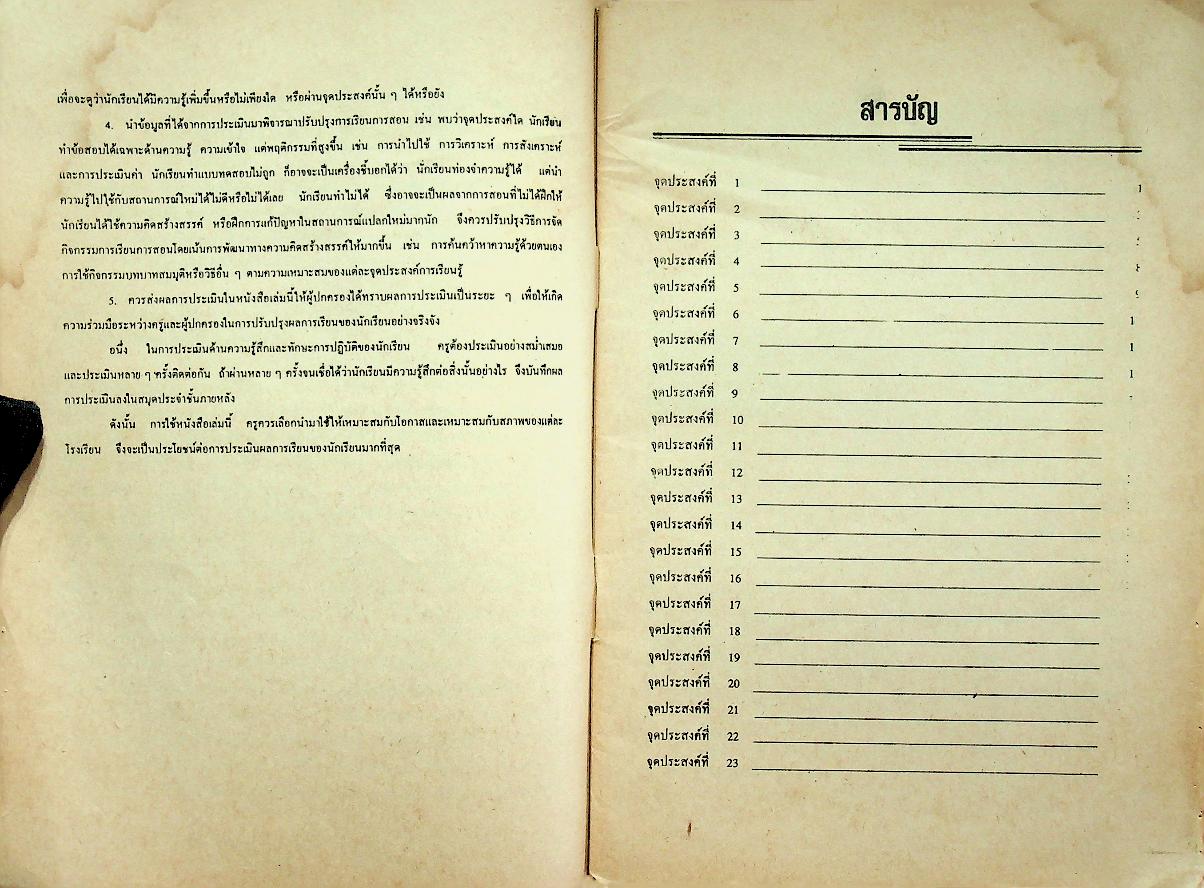 เพื่อจะดูว่านักเรียนได้มีความรู้เพิ่มขึ้นหรือไม่เพียงใด หรือผ่านจุดประสงค์นั้น ๆ ได้หรือยัง
4. นำข้อมูลที่ได้จากการประเมินมาพิจารณาปรับปรุงการเรียนการสอน เช่น พบว่าจุดประสงค์ใด นักเรียน
ทำข้อสอบได้เฉพาะด้านความรู้ ความเข้าใจ แต่พฤติกรรมที่สูงขึ้น เช่น การนำไปใช้ การวิเคราะห์ การสังเคราะห์
และการประเมินค่า นักเรียนทำแบบทดสอบไม่ถูก ก็อาจจะเป็นเครื่องชี้บอกได้ว่า นักเรียนท่องจำความรู้ได้ แต่นำ
ความรู้ไปใช้กับสถานการณ์ใหม่ได้ไม่ดีหรือไม่ได้เลย นักเรียนทำไม่ได้ ซึ่งอาจจะเป็นผลจากการสอนที่ไม่ได้ฝึกให้
นักเรียนได้ใช้ความคิดสร้างสรรค์ หรือฝึกการแก้ปัญหาในสถานการณ์แปลกใหม่มากนัก จึงควรปรับปรุงวิธีการจัด
กิจกรรมการเรียนการสอนโดยเน้นการพัฒนาทางความคิดสร้างสรรค์ให้มากขึ้น เช่น การค้นคว้าหาความรู้ด้วยตนเอง
การใช้กิจกรรมบทบาทสมมุติหรือวิธีอื่น ๆ ตามความเหมาะสมของแต่ละจุดประสงค์การเรียนรู้
5. ควรส่งผลการประเมินในหนังสือเล่มนี้ให้ผู้ปกครองได้ทราบผลการประเมินเป็นระยะ ๆ เพื่อให้เกิด
ความร่วมมือระหว่างครูและผู้ปกครองในการปรับปรุงผลการเรียนของนักเรียนอย่างจริงจัง
อนึ่ง ในการประเมินด้านความรู้สึกและทักษะการปฏิบัติของนักเรียน ครูต้องประเมินอย่างสม่ำเสมอ
และประเมินหลาย ๆ ครั้งติดต่อกัน ถ้าผ่านหลาย ๆ ครั้งจนเชื่อได้ว่านักเรียนมีความรู้สึกต่อสิ่งนั้นอย่างไร จึงบันทึกผล
การประเมินลงในสมุดประจำชั้นภายหลัง
ดังนั้น การใช้หนังสือเล่มนี้ ครูควรเลือกนำมาใช้ให้เหมาะสมกับโอกาสและเหมาะสมกับสภาพของแต่ละ
โรงเรียน จึงจะเป็นประโยชน์ต่อการประเมินผลการเรียนของนักเรียนมากที่สุด
สารบัญ
จุดประสงค์ที่ 1
จุดประสงค์ที่ 2
จุดประสงค์ที่ 3
จุดประสงค์ที่ 4
จุดประสงค์ที่ 5
จุดประสงค์ที่ 6
จุดประสงค์ที่ 7
จุดประสงค์ที่ 8
จุดประสงค์ที่ 9
จุดประสงค์ที่ 10
จุดประสงค์ที่ 11
จุดประสงค์ที่ 12
จุดประสงค์ที่ 13
จุดประสงค์ที่ 14
จุดประสงค์ที่ 15
จุดประสงค์ที่ 16
จุดประสงค์ที่ 17
จุดประสงค์ที่ 18
จุดประสงค์ที่ 19
จุดประสงค์ที่ 20
จุดประสงค์ที่ 21
จุดประสงค์ที่ 22
จุดประสงค์ที่ 23